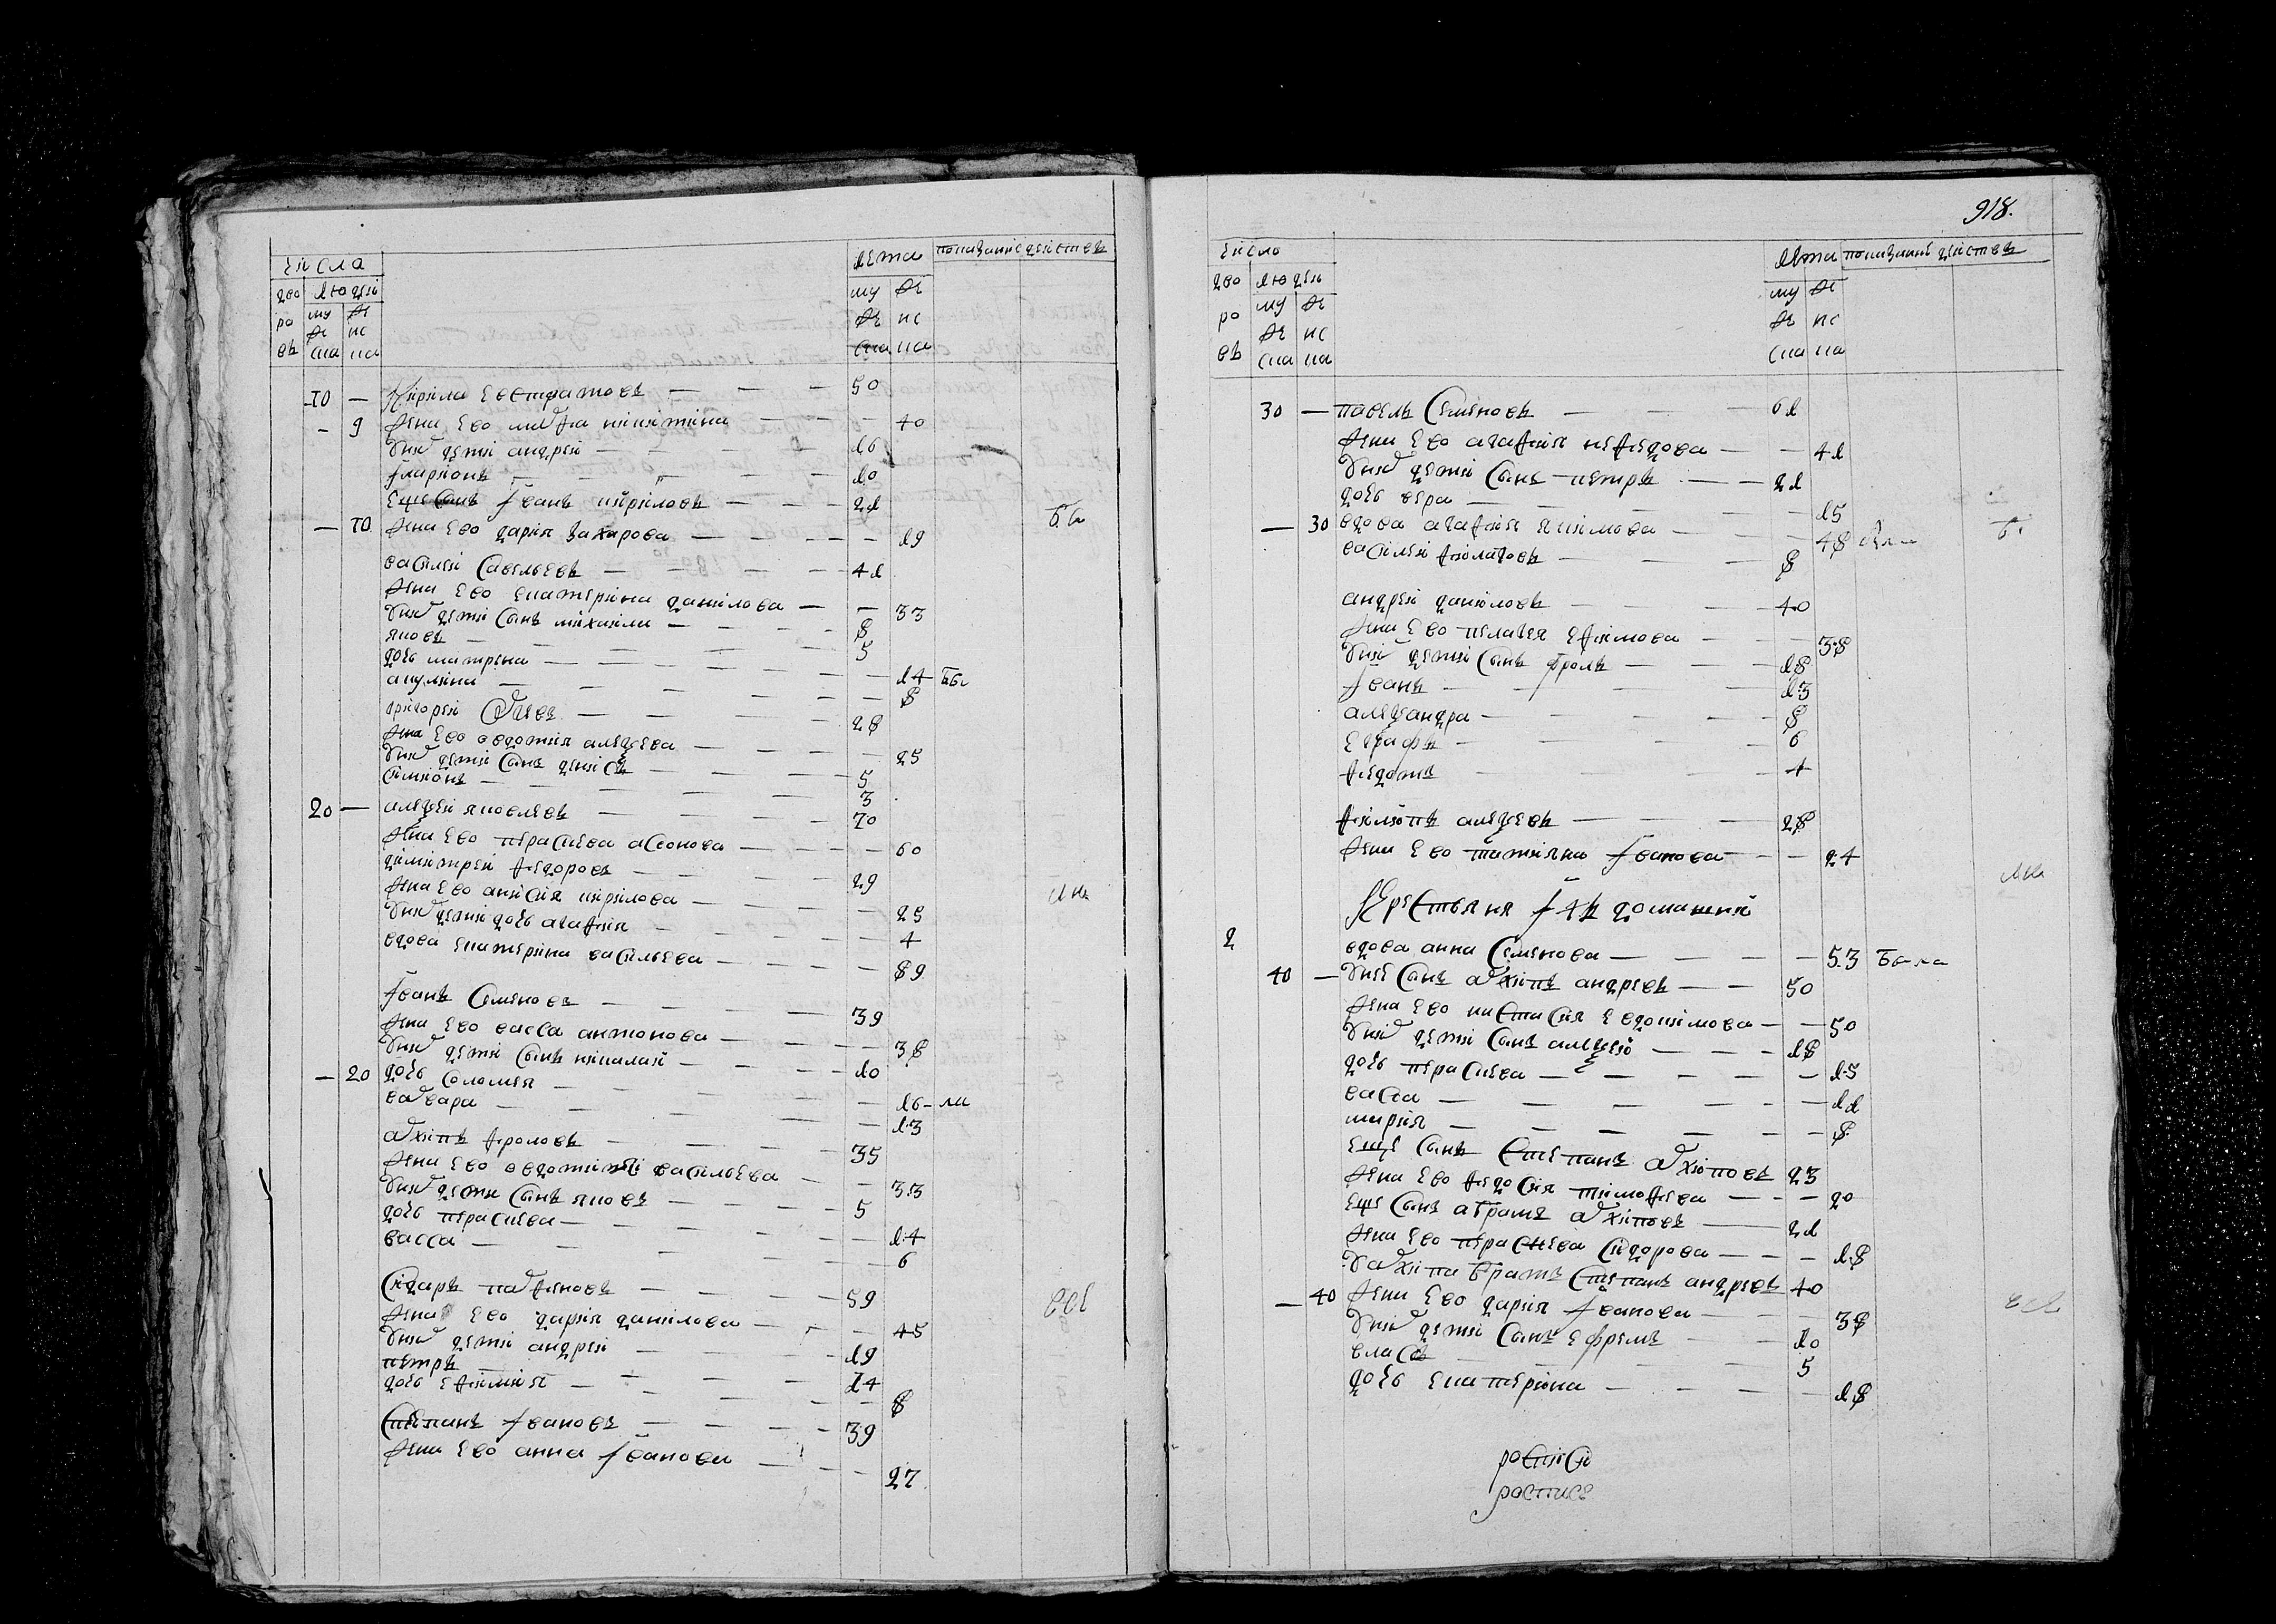 числа
лета показание действъ
дво люди
му же
ро му же
же нс
же нс
въ ска ка
ска ка
10 — кирила евстратовъ — — — 50
— 9 жена ево никитина — — 40
у них дети андреи — — — 16
ларионъ — — — 10
еще сынъ иванъ кириловъ — — — 21
— 10 жена ево даря захарова — — — 19
василеи савельевъ — — — 41
жена ево екатерина данилова — — 33
у них дети сынъ михаила — — — 8
яковъ — — — 5
дочь матрена — — — 14
акулина — — — 8
григореи — — — 28
жена ево авдотия алексеева — — 25
у них дети сынъ денисъ — — — 5
симионъ — — — 3
20 — алексеи яковлевъ — — — 70
жена ево пераскева — — — 60
димитреи федоровъ — — — 29
жена ево анисия кирилова — — — 28
у них дети дочь агафия — — — 4
вдова екатерина васильева — — — 89
иванъ семеновъ — — — 39
жена ево васса антонова — — — 38
у них дети сынъ николаи — — — 10
— 20 дочь соломея — — — 16
варвара — — — 13
архипъ фроловъ — — — 35
жена ево авдотия васильева — — 33
у них дети сынъ яковъ — — — 5
дочь пераскева — — — 14
васса — — — 6
сидаръ парфеновъ — — — 59
жена ево даря данилова — — — 45
у них дети андреи — — — 19
петръ — — — 14
дочь ефимия — — — 8
степанъ ивановъ — — — 39
жена ево анна иванова — — 27
918.
число
лета показание действъ
дво люди
му же
ро му же
же нс
же нс
въ ска ка
ска ка
30 — павелъ семеновъ — — — 61
жена ево агафия нефедова — — 41
у них дети сынъ петръ — — 21
дочь вера — — — 15
— 30 вдова агафия якимова — — — 48
василеи филатовъ — — — 8
андреи даниловъ — — — 40
жена ево пелагея ефимова — — — 38
у них дети сынъ фролъ — — — 18
иванъ — — — 13
александра — — — 8
евграфъ — — — 6
федотъ — — — 4
филипъ алексеевъ — — — 28
жена ево татияна иванова — — — 24
крестьяня домашния
2 вдова анна семенова — — — 53
40 — у нее сынъ архипъ андреевъ — — 50
жена ево настасия евдокимова — — 50
у них дети сынъ алексеи — — — 18
дочь пераскева — — — 15
васса — — — 11
мария — — — 8
еще сынъ степанъ архиповъ 23
жена ево федосия тимофеева — — — 20
еще сынъ абрамъ архиповъ — 21
жена ево пераскева сидорова — — — 18
у архипа братъ степанъ андреевъ 40
— 40 жена ево даря иванова — — — 38
у них дети сынъ ефремъ — — 10
власъ — — — 5
дочь екатерина — — — 18
росписи
роспись